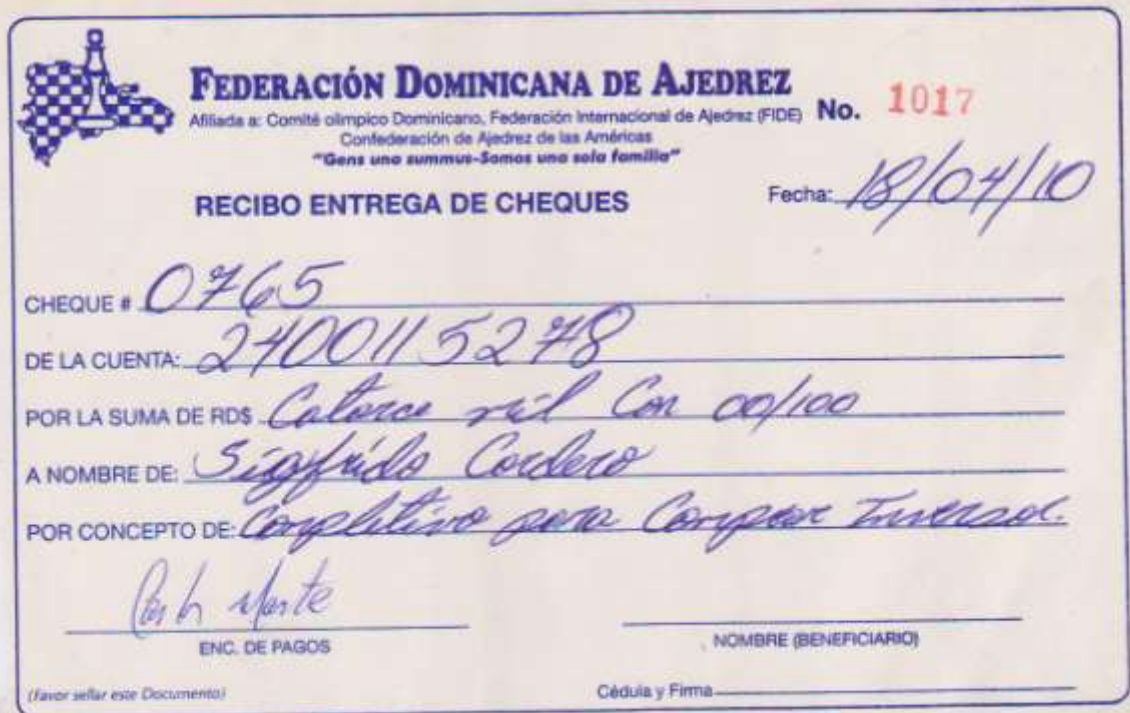 FEDERACIÓN DOMINICANA DE AJEDREZ
No. 1017
Afiliada a: Comité olimpico Dominicano, Federación Internacional de Ajedrez (FIDE)
Confederación de Ajedrez de las Américas
"Gens una summus-Somos una sola familia"
RECIBO ENTREGA DE CHEQUES
Fecha: 18/04/10
CHEQUE # 0765
DE LA CUENTA: 2400115278
POR LA SUMA DE RD$ Catorce mil Con 00/100
A NOMBRE DE: Sigfrido Cordero
POR CONCEPTO DE: Completivo para Comprar Inversor.
Marte
ENC. DE PAGOS
NOMBRE (BENEFICIARIO)
(Favor sellar este Documento)
Cédula y Firma